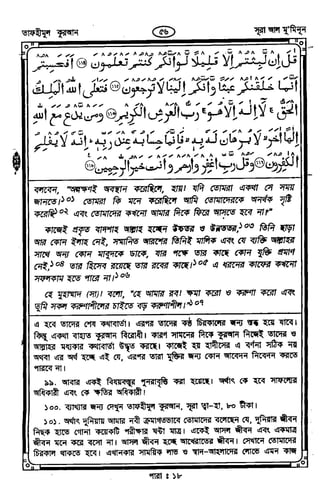 তাফহীমুল কুরআন
৫৬
সূরা আল মু'মিনূন
قٰلَ اِنْ لَّبِثْتُمْ اِلَّا قَلِيْلًا لَّوْ اَنَّكُمْ كُنْتُمْ تَعْلَمُوْنَ ﴿١١٤﴾ اَفَحَسِبْتُمْ
اَنَّمَا خَلَقْنٰكُمْ عَبَثًا وَّاَنَّكُمْ اِلَيْنَا لَا تُرْجَعُوْنَ ﴿١١٥﴾ فَتَعٰلَى اللّٰهُ الْمَلِكُ
الْحَقُّ ۚ لَآ اِلٰهَ اِلَّا هُوَ ۚ رَبُّ الْعَرْشِ الْكَرِيْمِ ﴿١١٦﴾ وَمَنْ يَّدْعُ مَعَ اللّٰهِ
اِلٰهًا اٰخَرَ لَا بُرْهَانَ لَهٗ بِهٖ فَاِنَّمَا حِسَابُهٗ عِنْدَ رَبِّهٖ ۗ اِنَّهٗ لَا يُفْلِحُ
الْكٰفِرُوْنَ ﴿١١٧﴾ وَقُلْ رَّبِّ اغْفِرْ وَارْحَمْ وَاَنْتَ خَيْرُ الرّٰحِمِيْنَ ﴿١١٨﴾
বলবেন, "অল্পক্ষণই অবস্থান করেছিলে, হায়! যদি তোমরা একথা সে সময়
জানতে।১০১ তোমরা কি মনে করেছিলে আমি তোমাদেরকে অনর্থক সৃষ্টি
করেছি১০২ এবং তোমাদের কখনো আমার দিকে ফিরে আসতে হবে না?"
কাজেই প্রকৃত বাদশাহ আল্লাহ হচ্ছেন উচ্চতর ও উন্নততর,১০৩ তিনি ছাড়া
আর কোন ইলাহ নেই, সম্মানিত আরশের তিনিই মালিক এবং যে ব্যক্তি আল্লাহর
সাথে অন্য কোন মাবুদকে ডাকে, যার পক্ষে তার কাছে কোন যুক্তি প্রমাণ
নেই,১০৪ তার হিসেব রয়েছে তার রবের কাছে।১০৫ এ ধরনের কাফের কখনো
সফলকাম হতে পারে না।১০৬
হে মুহাম্মাদ (সা)। বলো, "হে আমার রব! ক্ষমা করো ও করুণা করো এবং
তুমি সকল করুণাশীলের চাইতে বড় করুণাশীল।"১০৭
এ হবে তাদের শেষ কথাবার্তা। এরপর তাদের কণ্ঠ চিরকালের জন্য স্তব্ধ হয়ে যাবে।
কিন্তু একথা বাহ্যত কুরআন বিরোধী। কারণ সামনের দিকে কুরআন নিজেই তাদের ও
আল্লাহর মধ্যকার কথাবার্তা উদ্ধৃত করছে। কাজেই হয় হাদীসের এ বর্ণনা সঠিক নয়
অথবা এর অর্থ হচ্ছে এই যে, এরপর তারা মুক্তির জন্য কোন আবেদন নিবেদন করতে
পারবে না।
৯৯. আবার একই বিষয়বস্তুর পুনরাবৃত্তি করা হয়েছে। অর্থাৎ কে হবে সাফল্যের
অধিকারী এবং কে ক্ষতির অধিকারী।
১০০. ব্যাখ্যার জন্য দেখুন তাফহীমুল কুরআন, সূরা ত্বা-হা, ৮০ টীকা।
১০১. অর্থাৎ দুনিয়ায় আমার নবী ক্রমাগতভাবে তোমাদের বলেছেন যে, দুনিয়ার জীবন
নিছক হাতে গোনা কয়েকটি পরীক্ষার ঘন্টা মাত্র। একেই আসল জীবন এবং একমাত্র
জীবন মনে করে বসো না। আসল জীবন হচ্ছে আখেরাতের জীবন। সেখানে তোমাদের
চিরকাল থাকতে হবে। এখানকার সাময়িক লাভ ও স্বাদ-আহলাদের লোভে এমন কাজ
পারা : ১৮